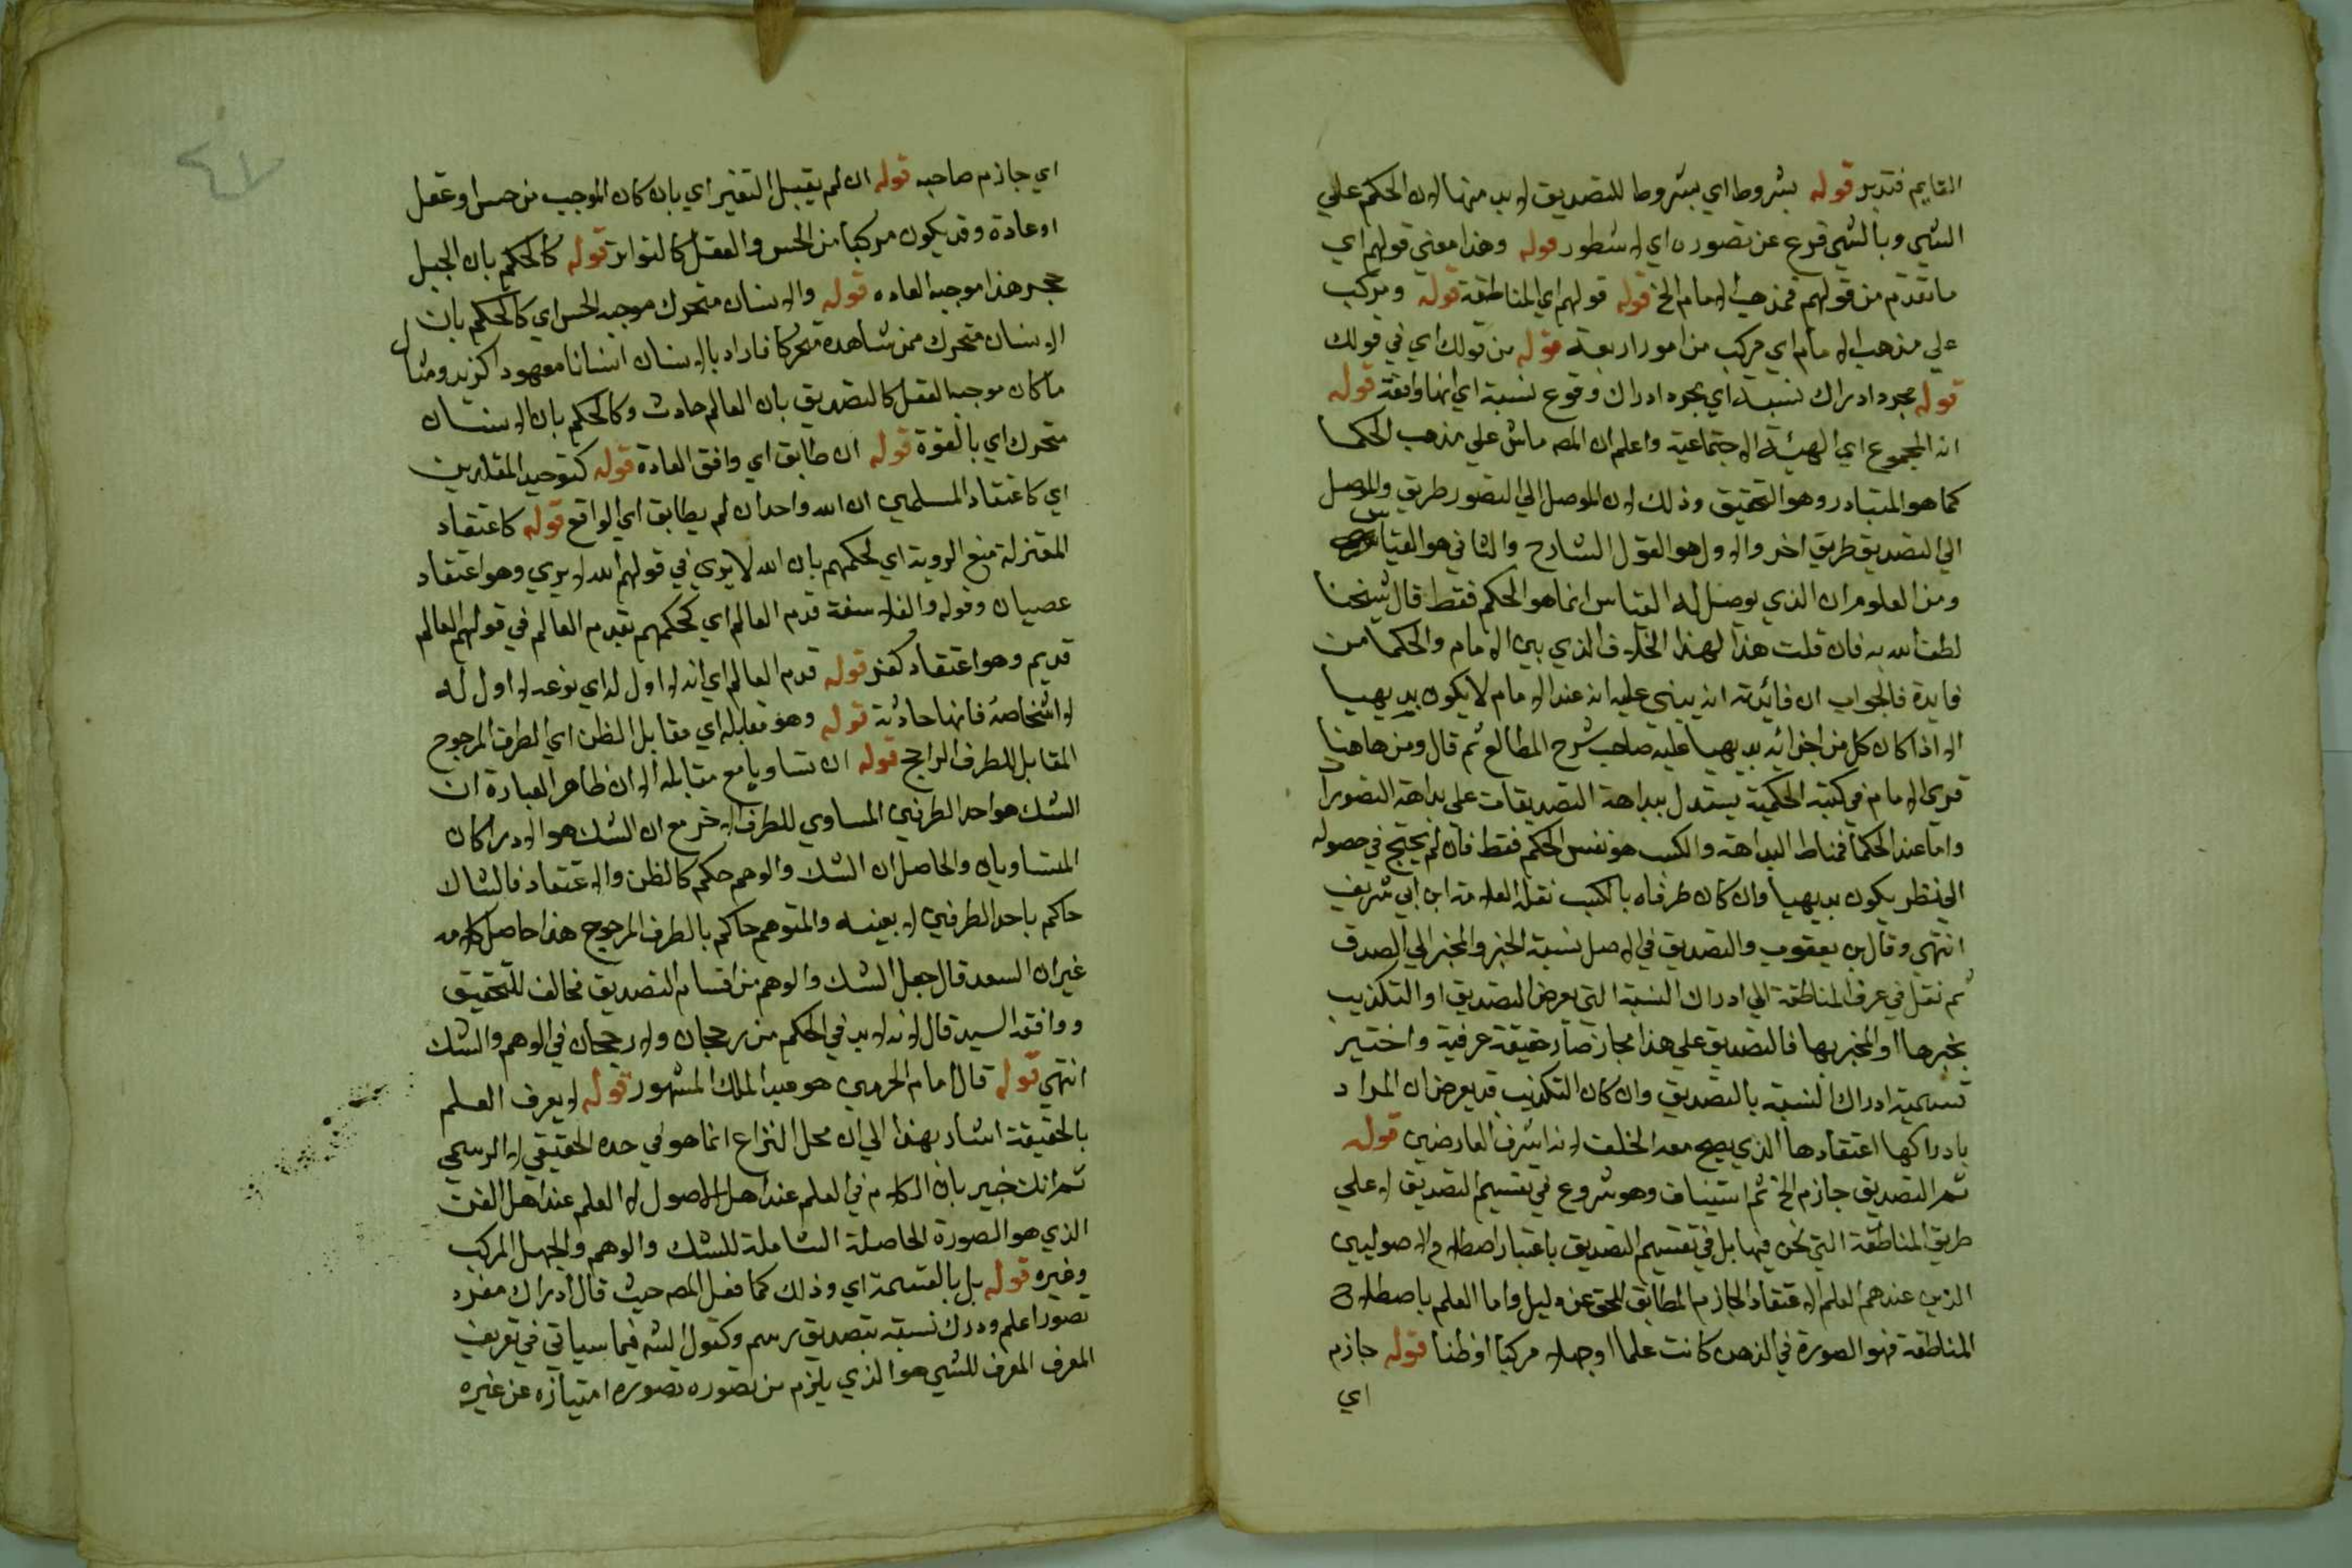 القايم فتدبر قوله بشروط اي بشروط للتصديق لا بد منها لان الحكم علي
الشي وبالشي فرع عن تصوره اي لا شطور قوله وهذا معني قولهم اي
ما تقدم من قولهم فمذهب الامام الخ قوله قولهم اي المناطقة قوله ويتركب
علي مذهب الامام اي مركب من امور اربعة قوله من قولك اي في قولك
قوله مجرد ادراك نسبة اي مجرد ادراك وقوع نسبة اي انها واقعة قوله
انه المجموع اي الهيئة الاجتماعية واعلم ان المصه ماش علي مذهب الحكما
كما هو المتبادر وهو التحقيق وذلك لان الموصل الي التصور طريق والموصل
الي التصديق طريق اخر والاول هو القول الشارح والثاني هو القياس
ومن العلوم ان الذي يوصل له القياس انما هو الحكم فقط قال شيخنا
لطف الله به فان قلت هذا لهذا الخلاف الذي بين الامام والحكما من
فايدة فالجواب ان فائدته انه يبني عليه انه عند الامام لا يكون بديهيا
الا اذا كان كل من اجزائه بديهيا عليه صاحب شرح المطالع ثم قال ومن هاهنا
تري الامام في كتبه الحكمية يستدل ببداهة التصديقات علي بداهة التصورا
واما عند الحكما فمناط البداهة والكسب هو نفس الحكم فقط فان لم يحتج في حصوله
الي نظر يكون بديهيا وان كان طرفاه بالكسب نقله العلامة ابن ابي شريف
انتهي وقال بن يعقوب والتصديق في الاصل نسبة الخبر والمخبر الي الصدق
ثم نقل في عرف المناطقة الي ادراك النسبة التي يعرض التصديق او التكذيب
بخبرها او المخبر بها فالتصديق علي هذا مجاز صار حقيقة عرفية واختير
تسمية ادراك النسبة بالتصديق وان كان التكذيب قد يعرض ان المراد
بادراكها اعتقادها الذي يصح معه الخلف لانه اشرف العارضين قوله
ثم التصديق جازم الخ ثم استيناف وهو شروع في تقسيم التصديق لا علي
طريق المناطقة التي نحن فيها بل في تقسيم التصديق باعتبار اصطلاح الاصوليين
الذين عندهم العلم الاعتقاد الجازم المطابق للحق عن دليل واما العلم باصطلاح
المناطقة فهو الصورة في الذهن كانت علما او جهلا مركبا او ظنا قوله جازم
اي
٤٧
اي جازم صاحبه قوله ان لم يقبل التغير اي بان كان الموجب من حس او عقل
او عادة وقد يكون مركبا من الحس والعقل كالتواتر قوله كالحكم بان الجبل
حجر هذا موجبه العاده قوله والانسان متحرك موجبه الحس اي كالحكم بان
الانسان متحرك ممن شاهده متحركا فاراد بالانسان انسانا معهودا كزيد ومثال
ما كان موجبه العقل كالتصديق بان العالم حادث وكالحكم بان الانسان
متحرك اي بالقوة قوله ان طابق اي وافق العادة قوله كتوحيد المقلدين
اي كاعتقاد المسلمين ان الله واحد ان لم يطابق اي الواقع قوله كاعتقاد
المعتزلة منع الروية اي لحكمهم بان الله لا يري في قولهم الله لا يري وهو اعتقاد
عصيان وقوله والفلاسفة قدم العالم اي كحكمهم بقدم العالم في قولهم العالم
قديم وهو اعتقاد كفر قوله قدم العالم اي انه لا اول له اي نوعه لا اول له
لا اشخاصه فانها حادثة قوله وهو مقابله اي مقابل الظن اي الطرف المرجوح
المقابل للطرف الراجح قوله ان تساويا مع مقابله الا ان ظاهر العبارة ان
الشك هو احد الطرفين المساوي للطرف الاخر مع ان الشك هو الادراكان
المتساويان والحاصل ان الشك والوهم حكم كالظن والاعتقاد فالشاك
حاكم باحد الطرفين لا بعينه والمتوهم حاكم بالطرف المرجوح هذا حاصل كلامه
غير ان السعد قال جعل الشك والوهم من اقسام التصديق مخالف للتحقيق
ووافقه السيد قال لانه لا بد في الحكم من رجحان ولا رجحان في الوهم والشك
انتهي قوله قال امام الحرمين هو عبد الملك المشهور قوله لا يعرف العلم
بالحقيقة اشار بهذا الي ان محل النزاع انما هو في حده الحقيقي لا الرسمي
ثم انك خبير بان الكلام في العلم عند اهل الاصول لا العلم عند اهل الفن
الذي هو الصورة الحاصلة الشاملة للشك والوهم والجهل المركب
وغيره قوله بل بالقسمة اي وذلك كما فعل المصه حيث قال ادراك مفرد
تصورا علم ودرك نسبة بتصديق رسم وكقول الشه فيما سياتي في تعريف
المعرف المعرف للشي هو الذي يلزم من تصوره تصوره امتيازه عن غيره